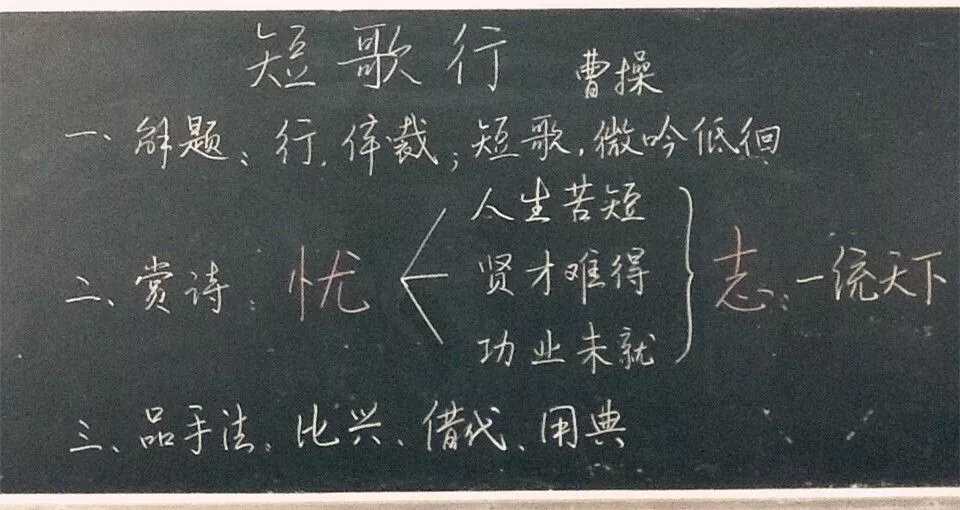 短歌行 曹操
一、解题：行，体裁；短歌，微吟低徊
人生苦短
二、赏诗：忧 贤才难得 志：一统天下
功业未就
三、品手法：比兴、借代、用典